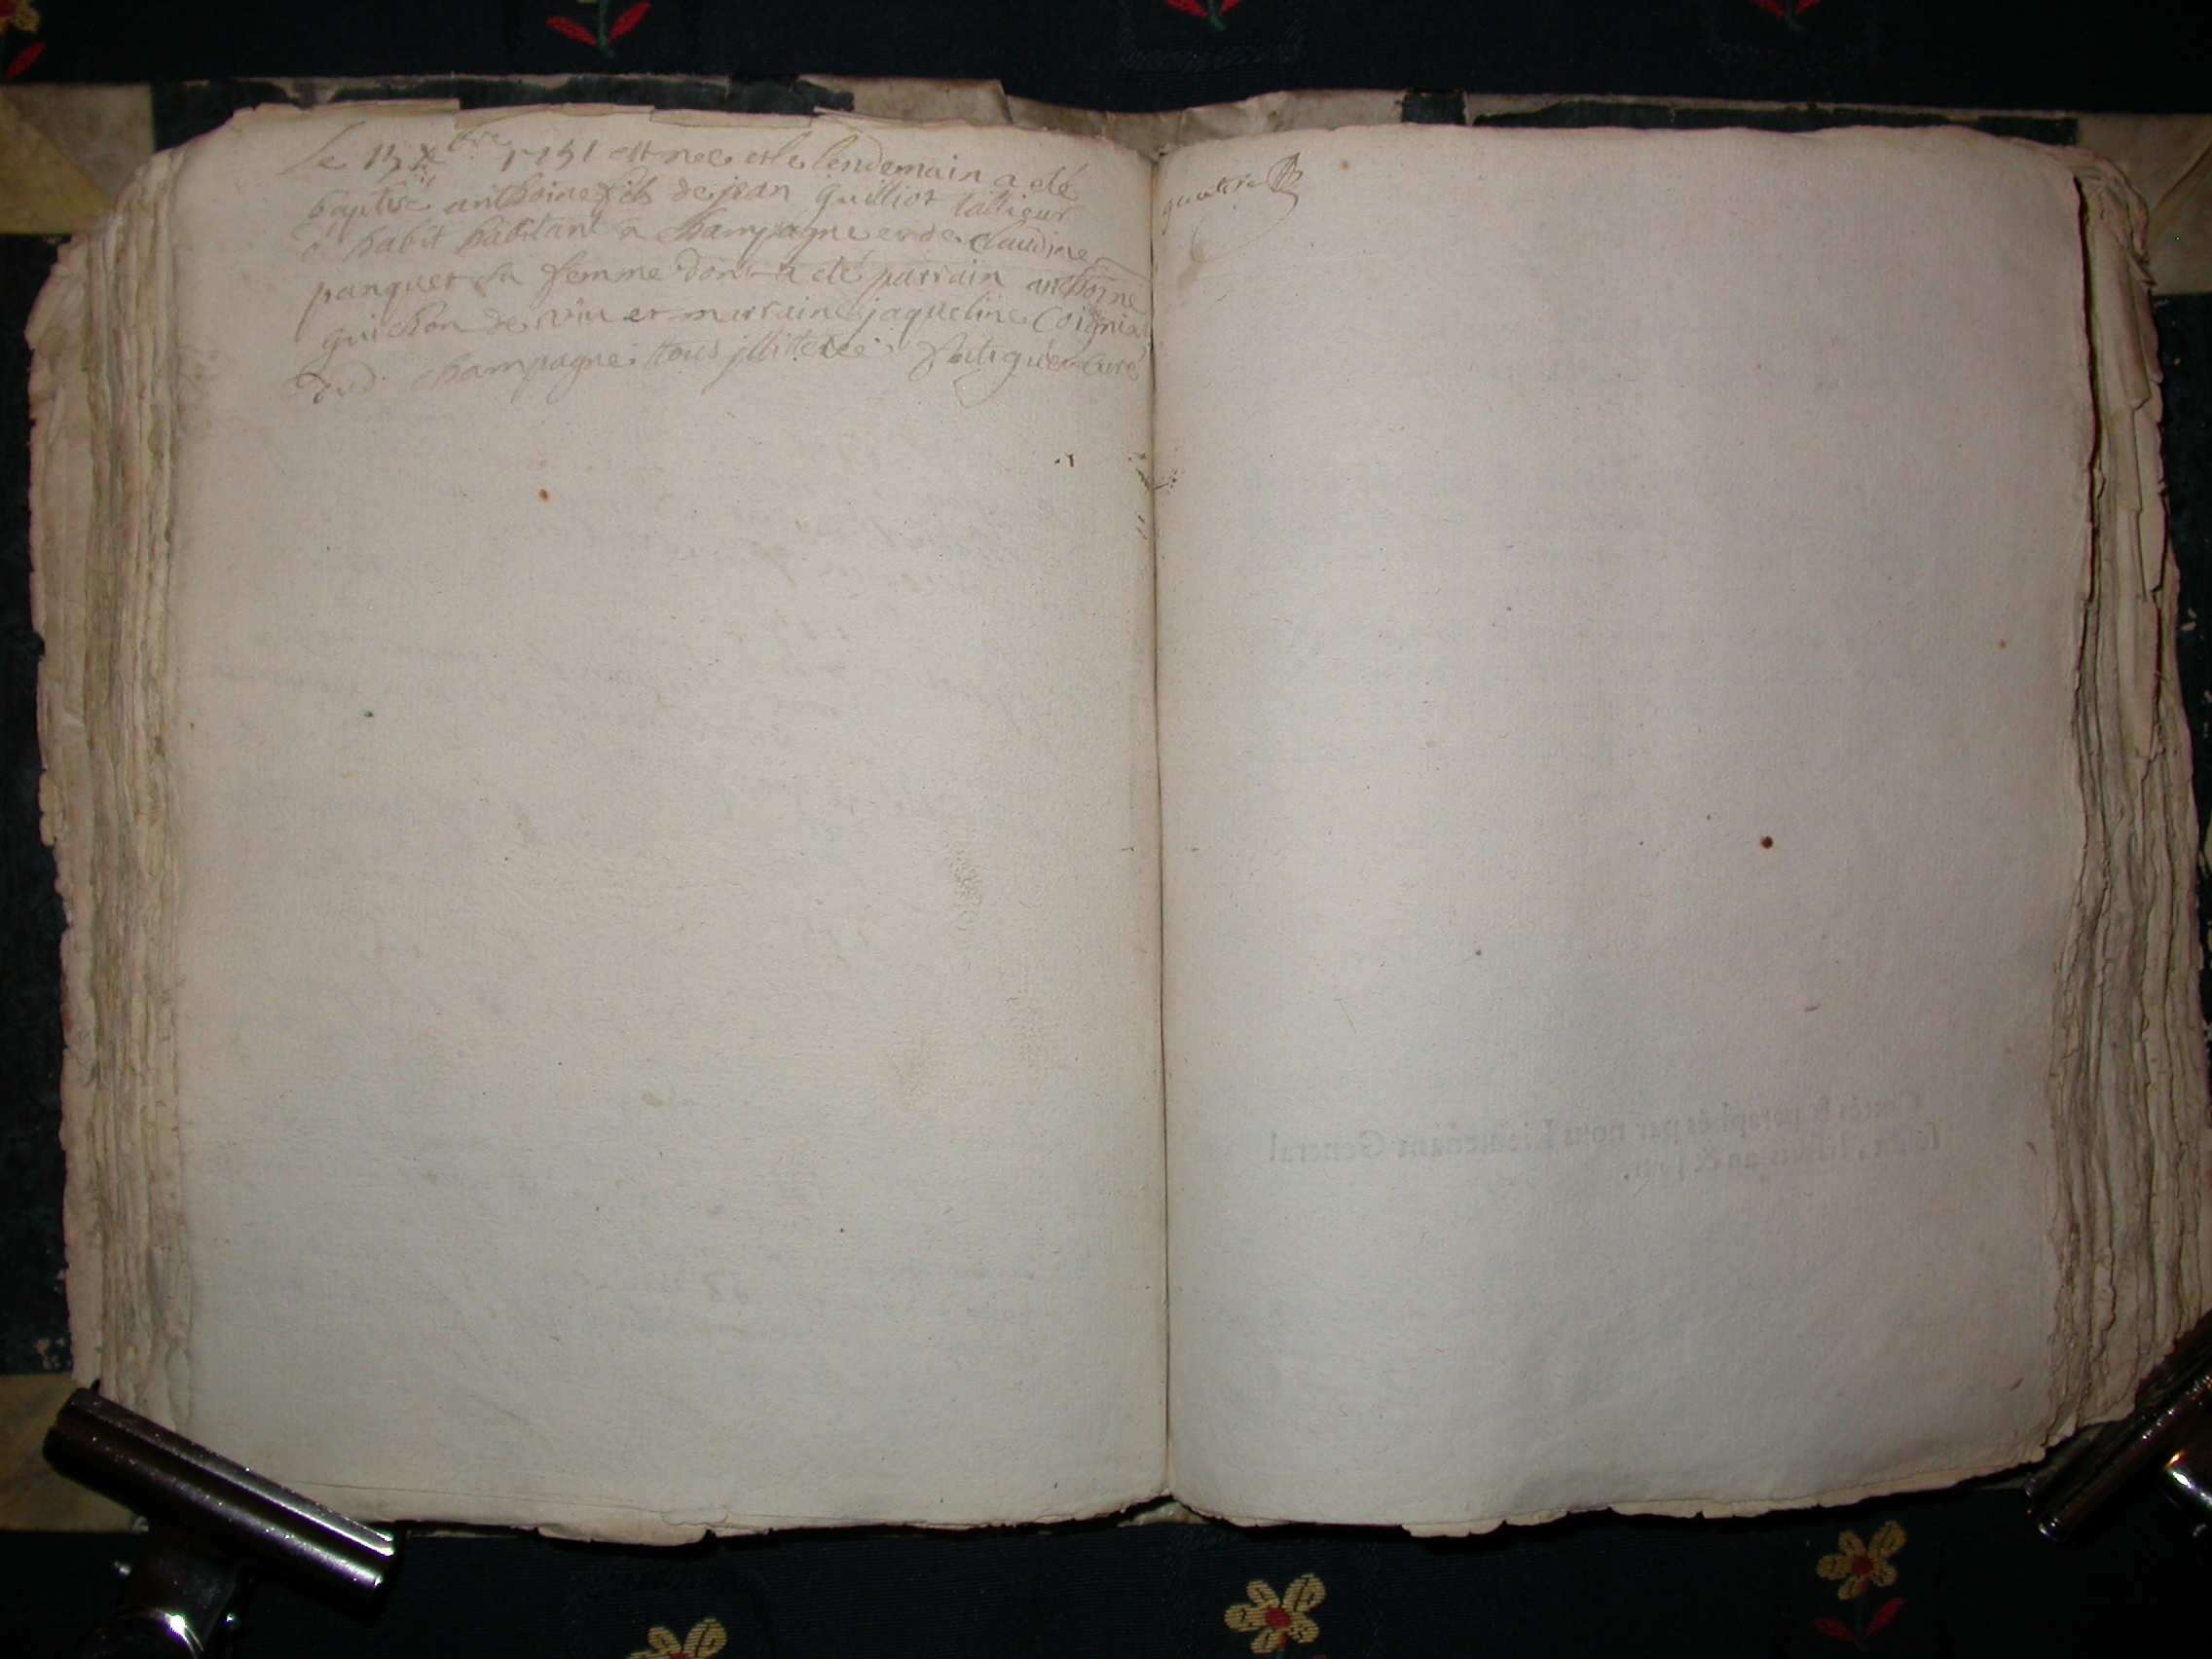 Le 13 Xbre 1731 est nee et le lendemain a eté
baptisé anthoine fils de jean Guilliot tallieur
d habit habitant a Champagne et de claudine
panquet sa femme dont a eté parrain anthoine
guichon de viu et marraine jaqueline Coignia
dud champagne tous illiteré curé
quatre
Cottés & paraphés par nous Lieutenant General